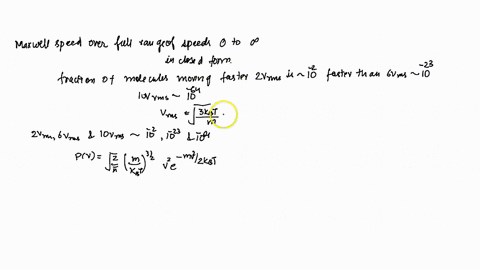 Maxwell speed over full range of speeds 0 to ∞
in closed form
fraction of molecules moving faster 2vrms is ~ 10^-2 faster than 6vrms ~ 10^-23
10vrms ~ 10^-64
Vrms = √(3kBT/m)
2vrms, 6vrms & 10vrms ~ 10^-2, 10^-23 & 10^-64
P(v) = √(2/π) (m/kBT)^3/2 v^2 e^-mv^2/2kBT